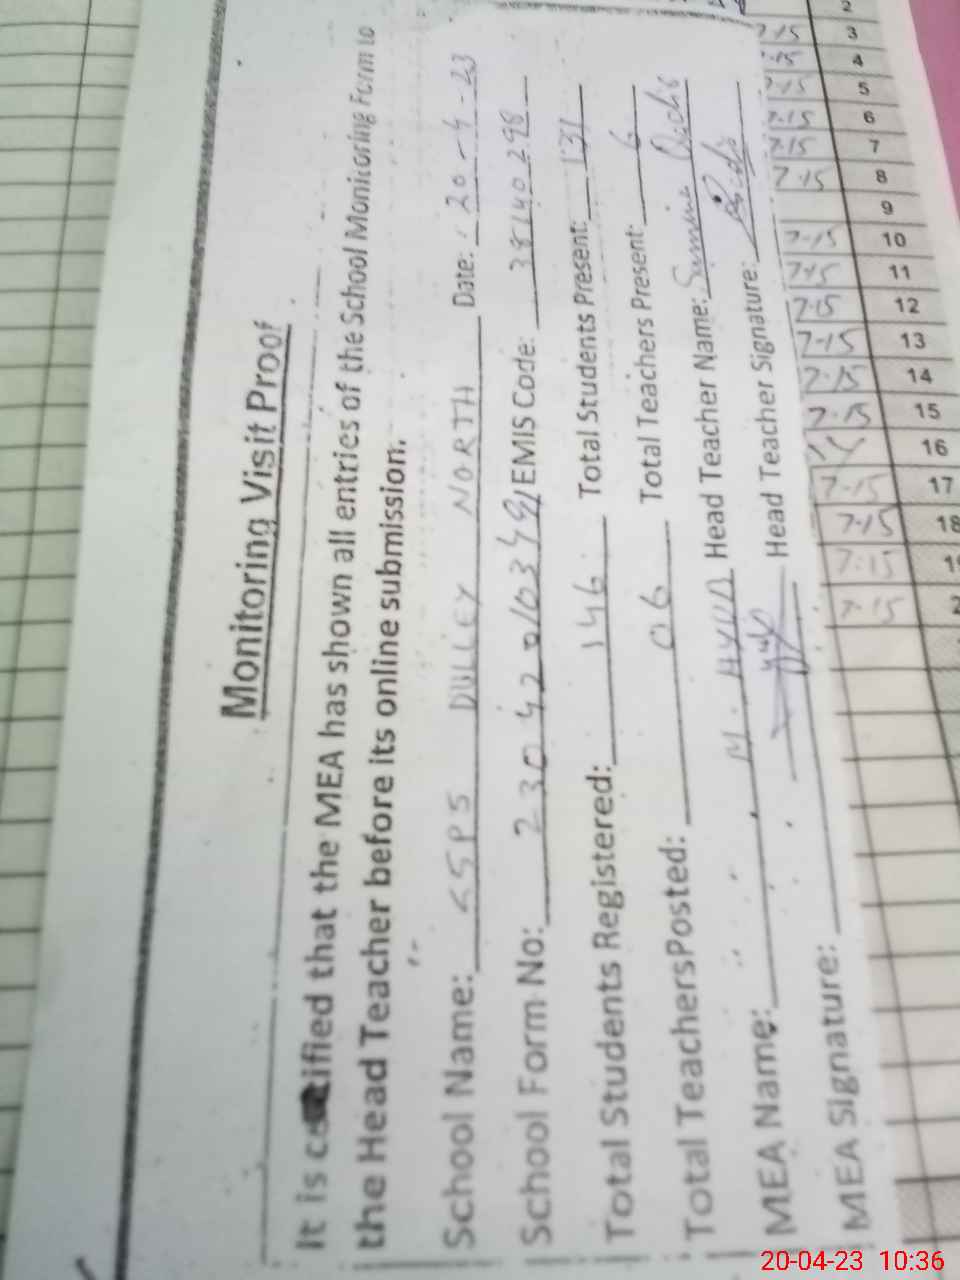 Monitoring Visit Proof
It is certified that the MEA has shown all entries of the School Monitoring Form to
the Head Teacher before its online submission.
School Name: GGPS DULLEY NORTH Date: 20-4-23
School Form No: EMIS Code: 38140298
Total Students Registered: 146 Total Students Present: 131
Total TeachersPosted: 06 Total Teachers Present: 6
MEA Name: M. Head Teacher Name: Samina
MEA Signature: Head Teacher Signature:
2
7-15 3
4
7-15 5
7-15 6
7-15 7
7-15 8
9
7-15 10
7-15 11
7-15 12
7-15 13
7-15 14
7-15 15
16
7-15 17
7-15 18
7:15
7-15
20-04-23 10:36